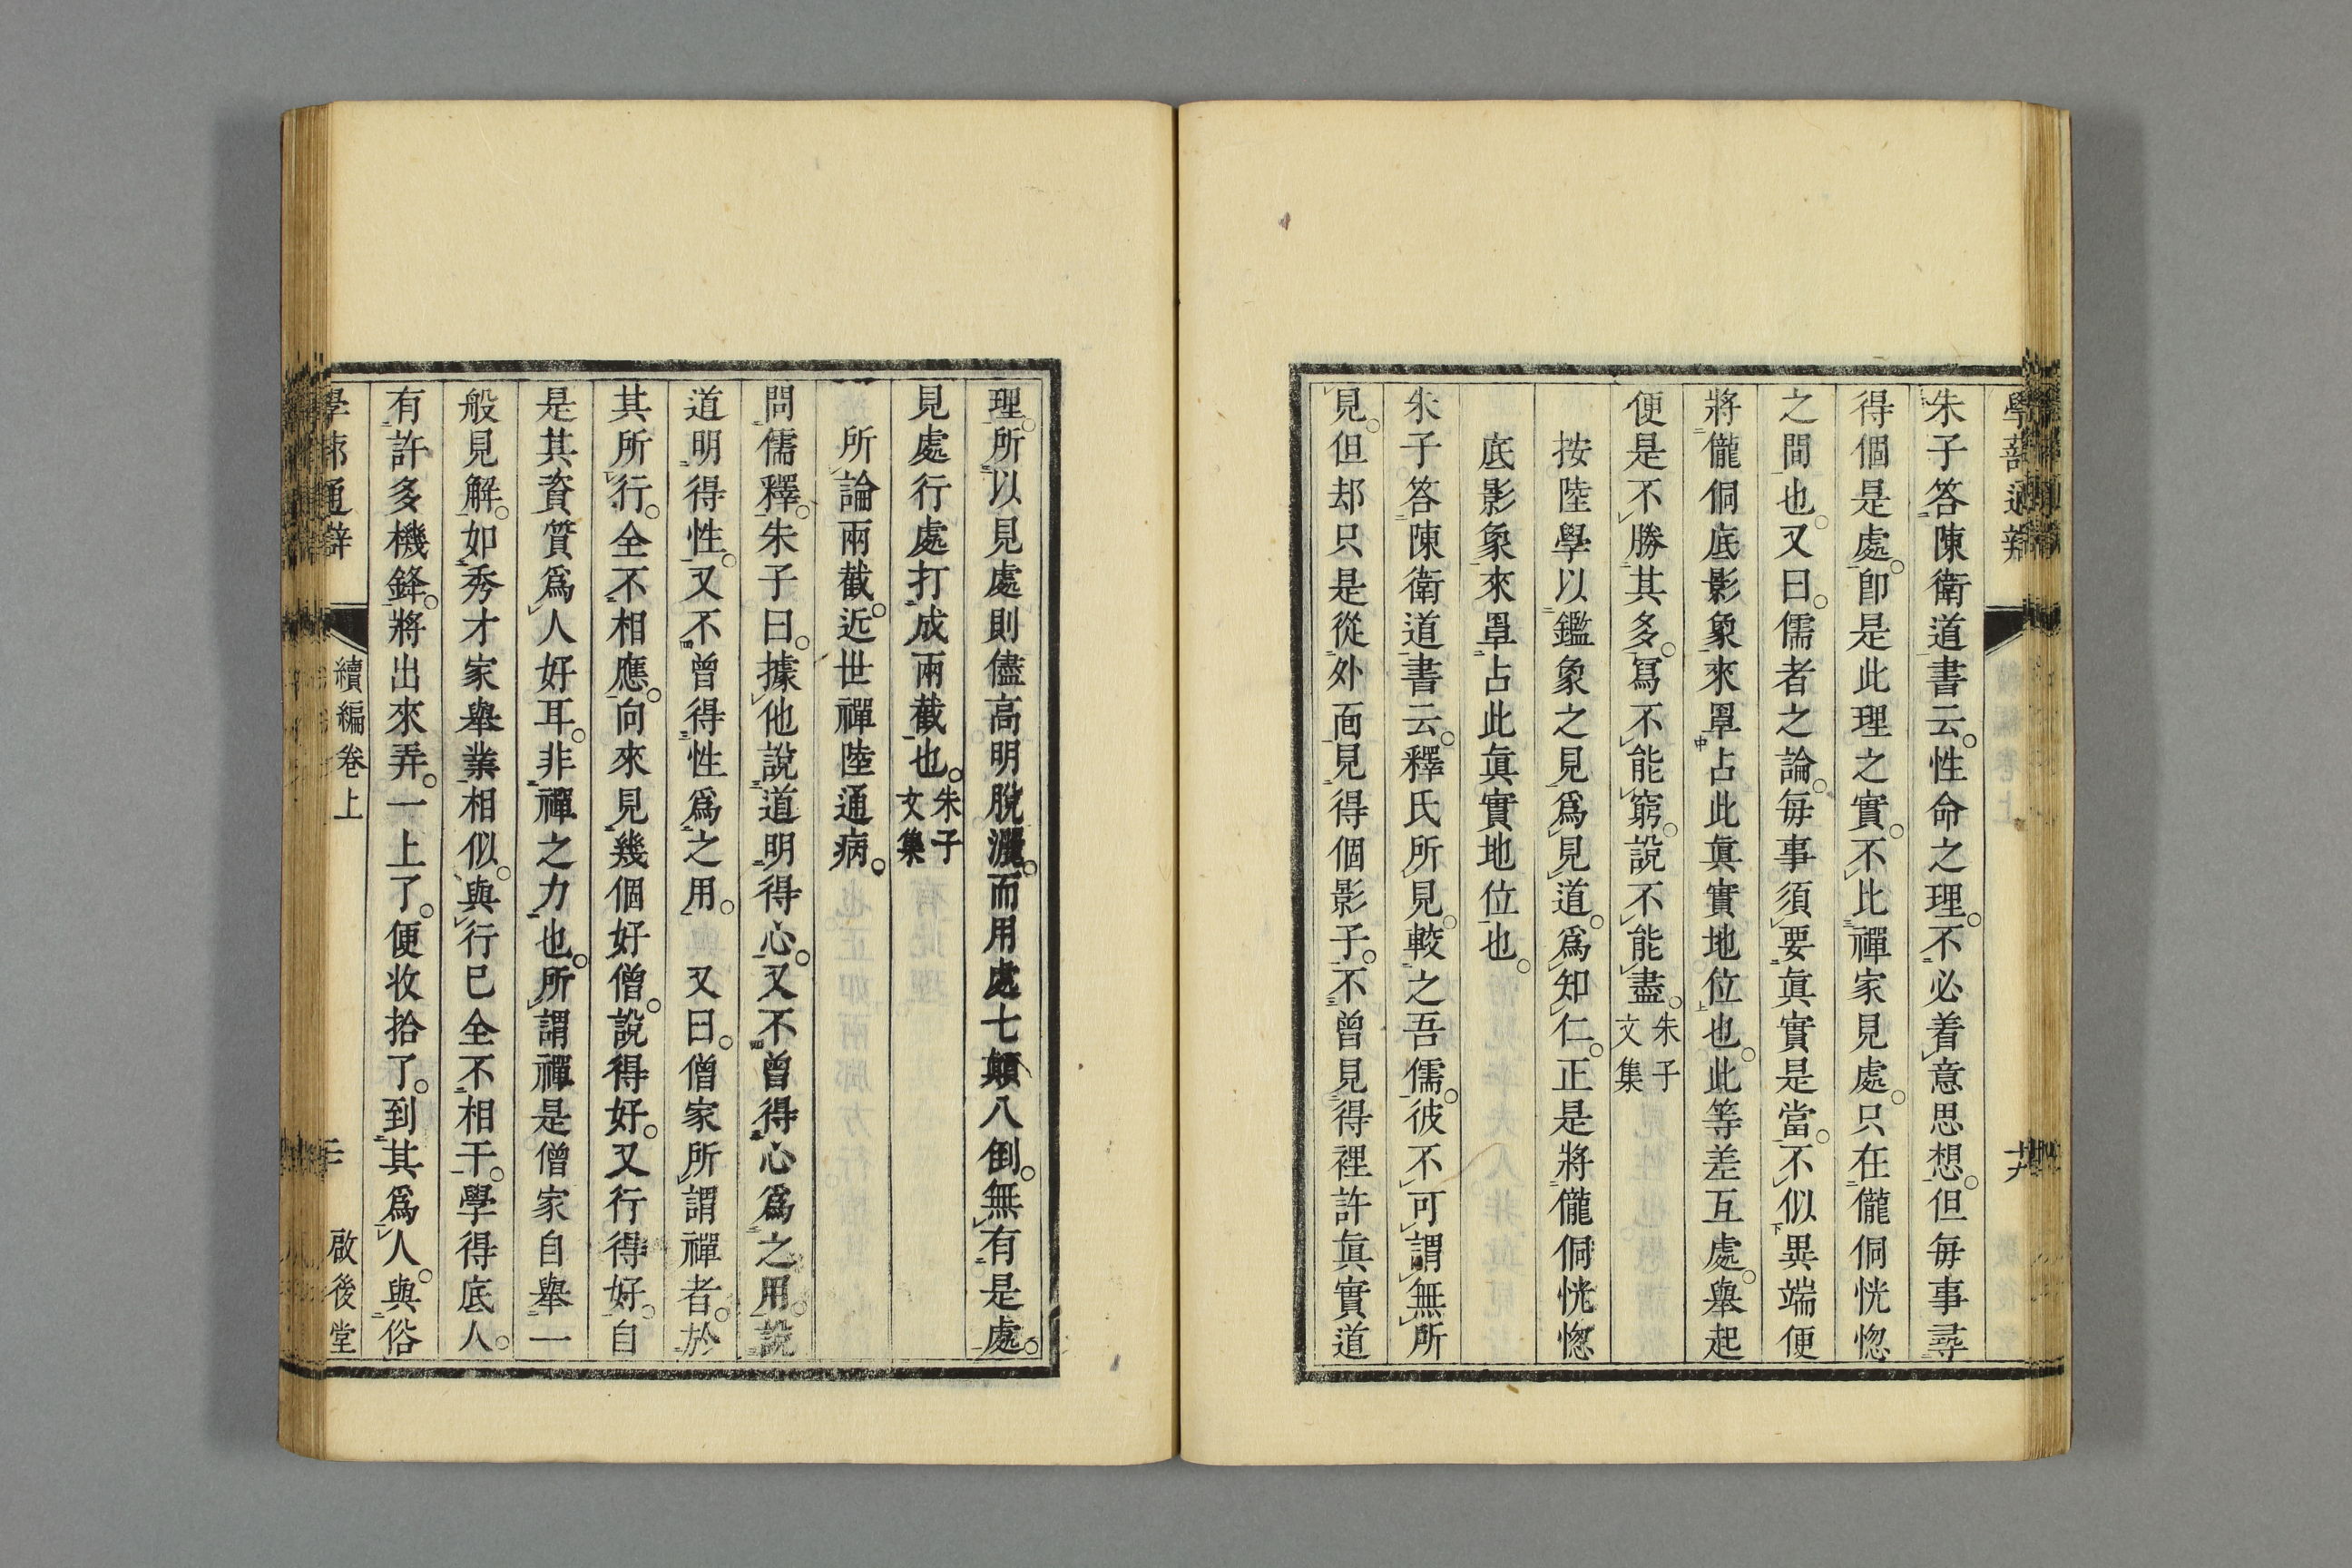 學蔀通辯
朱子答陳衛道書云性命之理不必着意思想但每事尋
得個是處卽是此理之實不比禪家見處只在儱侗恍惚
之間也又曰儒者之論每事須要眞實是當不似異端便
將儱侗底影象來罩占此眞實地位也此等差互處舉起
便是不勝其多寫不能窮說不能盡朱子文集
按陸學以鑑象之見爲見道爲知仁正是將儱侗恍惚
底影象來罩占此眞實地位也
朱子答陳衛道書云釋氏所見較之吾儒彼不可謂無所
見但却只是從外面見得個影子不曾見得裡許眞實道
理所以見處則儘高明脫灑而用處七顛八倒無有是處
見處行處打成兩截也朱子文集
所論兩截近世禪陸通病
問儒釋朱子曰據他說道明得心又不曾得心爲之用說
道明得性又不曾得性爲之用又曰僧家所謂禪者於
其所行全不相應向來見幾個好僧說得好又行得好自
是其資質爲人好耳非禪之力也所謂禪是僧家自舉一
般見解如秀才家舉業相似與行已全不相干學得底人
有許多機鋒將出來弄一上了便收拾了到其爲人與俗
學蔀通辯 續編卷上 啟後堂